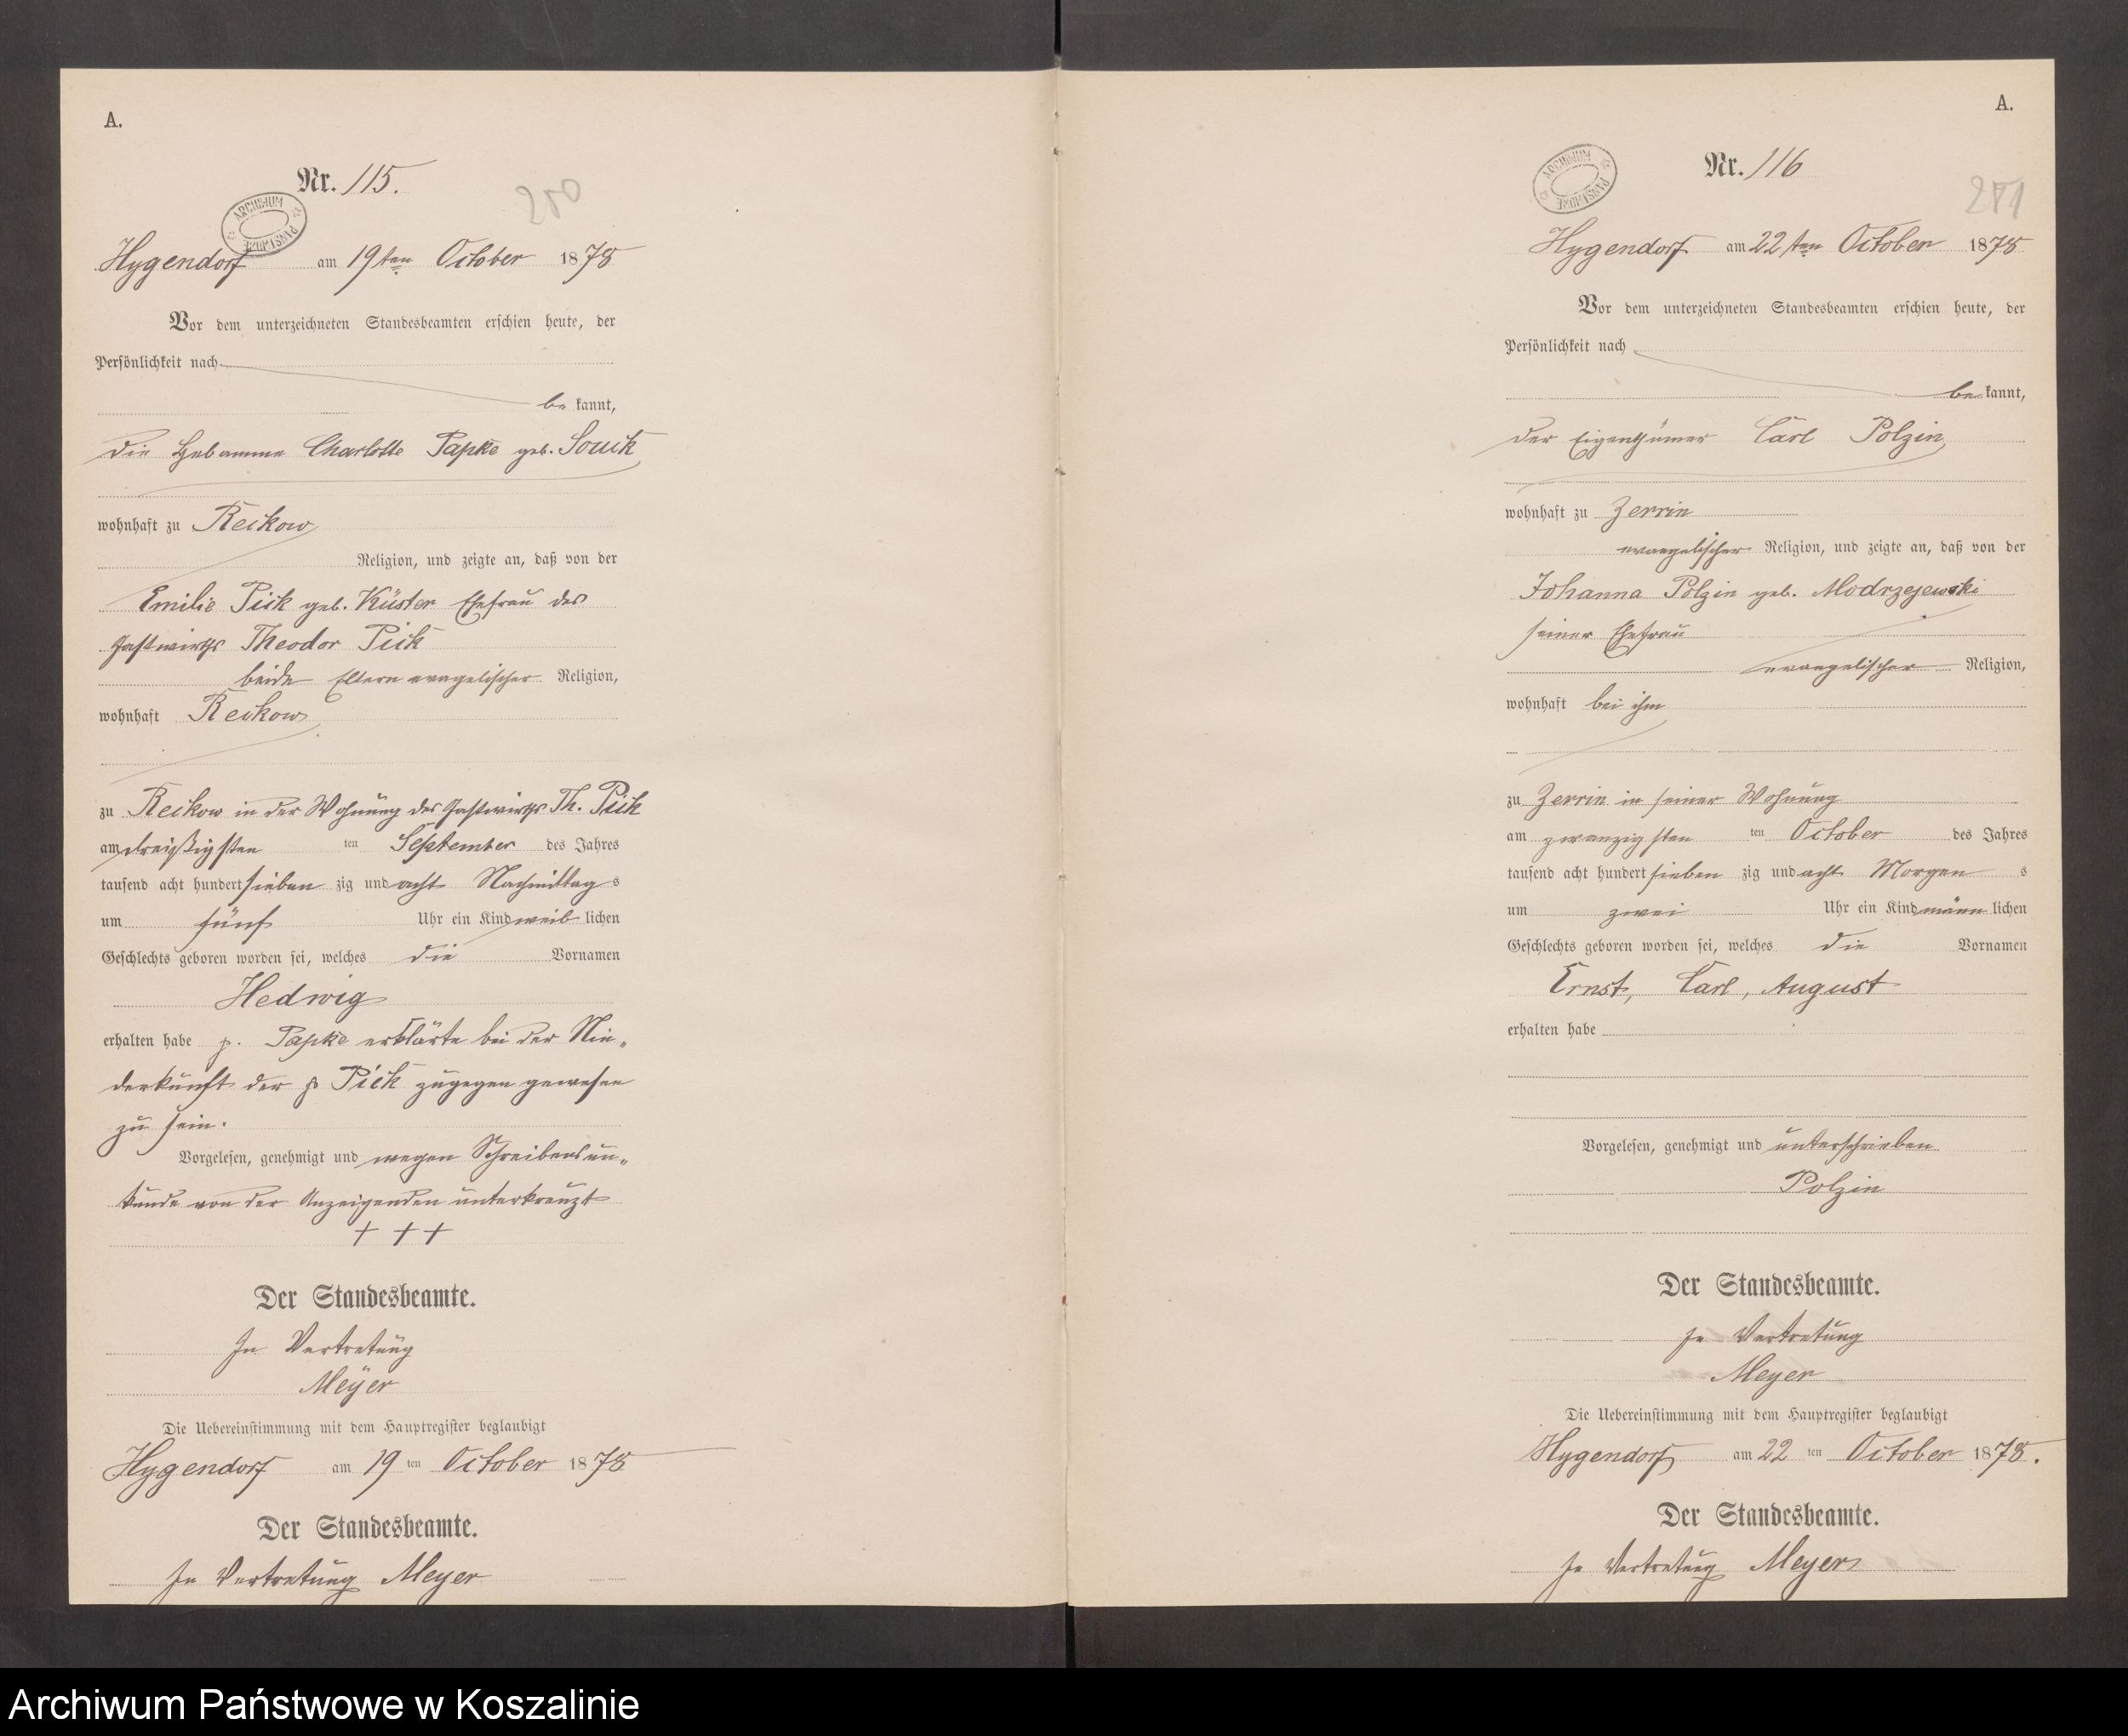 A.
Nr. 115.
250
ARCHIWUM PAŃSTWOWE
Hygendorf am 19ten October 1878
Vor dem unterzeichneten Standesbeamten erschien heute, der
Persönlichkeit nach
be kannt,
die Hebamme Charlotte Papke geb.
wohnhaft zu Reckow
Religion, und zeigte an, daß von der
Emilie Pick geb. Küster Ehefrau des
Gastwirths Theodor Pick
beide Eltern evangelischer Religion,
wohnhaft Reckow
zu Reckow in der Wohnung des Gastwirths Th. Pick
am dreißigsten ten September des Jahres
tausend acht hundert sieben zig und acht Nachmittag s
um fünf Uhr ein Kind weib lichen
Geschlechts geboren worden sei, welches die Vornamen
Hedwig
erhalten habe p. Papke erklärte bei der Nie„
derkunft der p Pick zugegen gewesen
zu sein.
Vorgelesen, genehmigt und wegen Schreibensun„
kunde von der Anzeigenden unterkreuzt
+ + +
Der Standesbeamte.
In Vertretung
Meyer
Die Uebereinstimmung mit dem Hauptregister beglaubigt
Hygendorf am 19 ten October 1878
Der Standesbeamte.
In Vertretung Meyer
A.
Nr. 116
251
ARCHIWUM PAŃSTWOWE
Hygendorf am 22 ten October 1878
Vor dem unterzeichneten Standesbeamten erschien heute, der
Persönlichkeit nach
be kannt,
der Eigenthümer Carl Polzin
wohnhaft zu Zerrin
evangelischer Religion, und zeigte an, daß von der
Johanna Polzin geb. Modrzejewski
seiner Ehefrau
evangelischer Religion,
wohnhaft bei ihm
zu Zerrin in seiner Wohnung
am zwanzigsten ten October des Jahres
tausend acht hundert sieben zig und acht Morgen s
um zwei Uhr ein Kind männ lichen
Geschlechts geboren worden sei, welches die Vornamen
Ernst, Carl, August
erhalten habe
Vorgelesen, genehmigt und unterschrieben
Polzin
Der Standesbeamte.
In Vertretung
Meyer
Die Uebereinstimmung mit dem Hauptregister beglaubigt
Hygendorf am 22 ten October 1878.
Der Standesbeamte.
In Vertretung Meyer
Archiwum Państwowe w Koszalinie